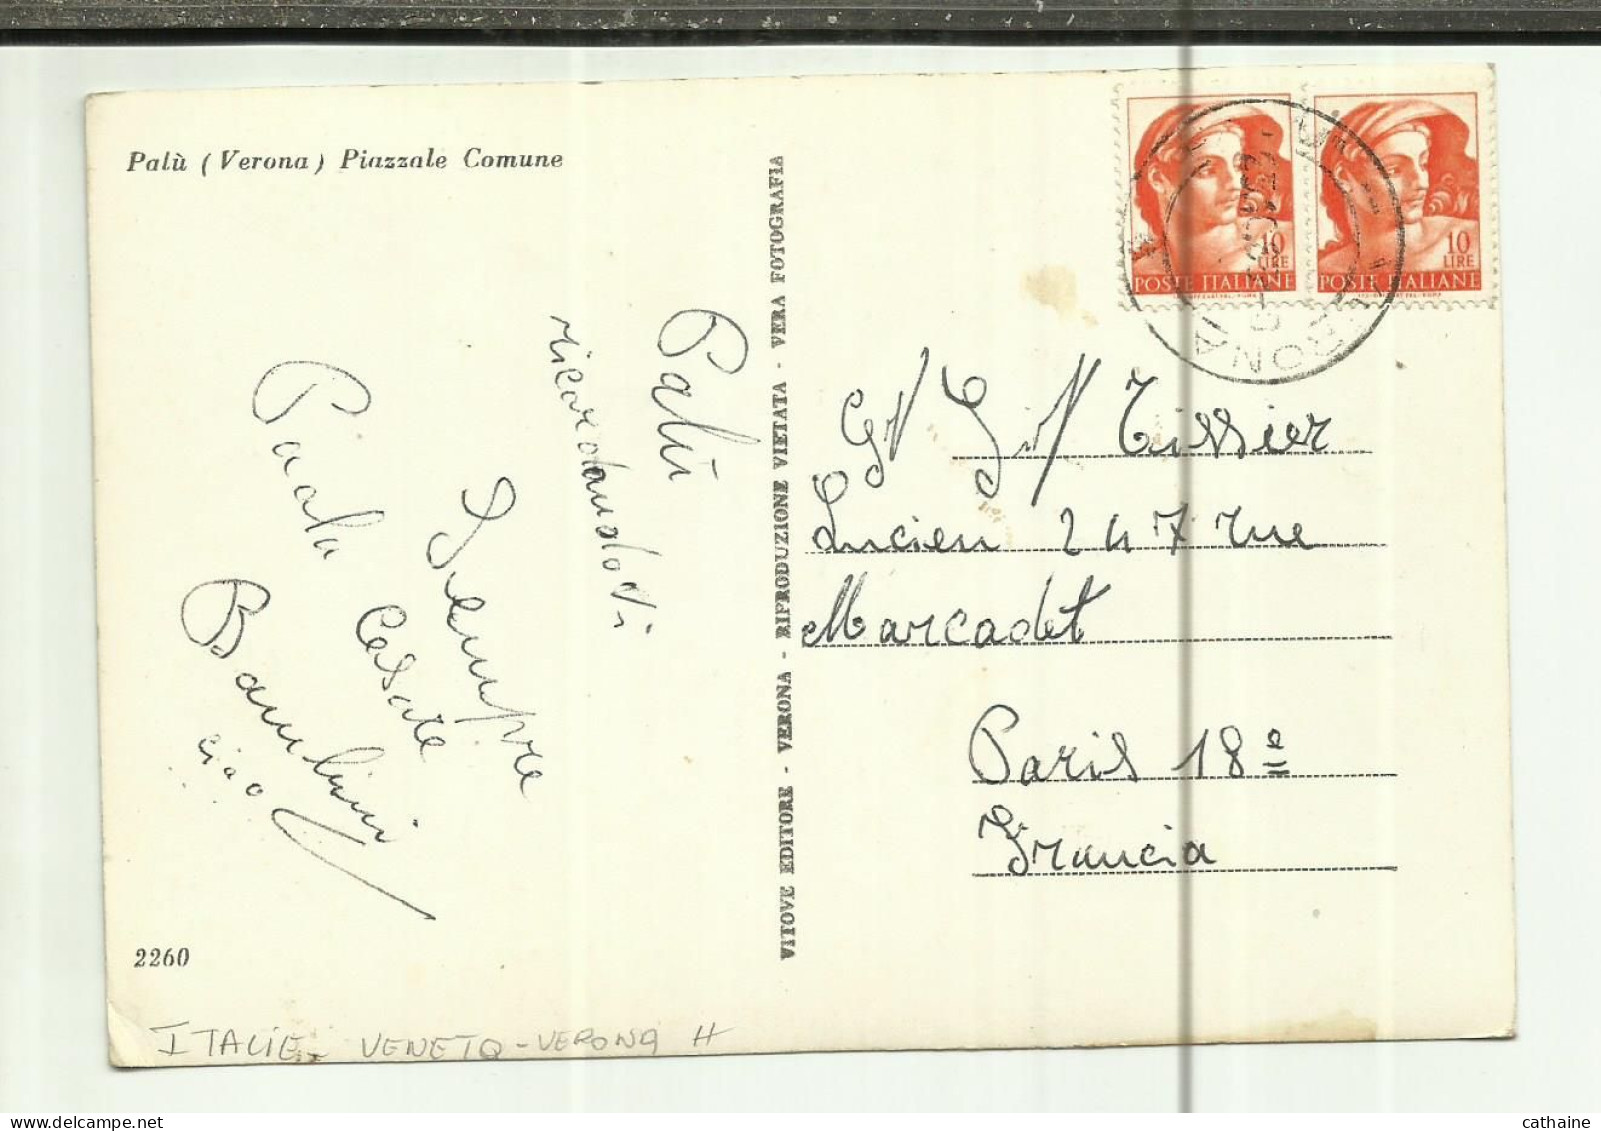 Palù ( Verona ) Piazzale Comune
Palù
ricordandoVi
Sempre
Paola
Cesare
Bambini
ciao
2260
ITALIE - VENETO - VERONA H
VITOVE EDITORE - VERONA - RIPRODUZIONE VIETATA - VERA FOTOGRAFIA
10
LIRE
POSTE ITALIANE
10
LIRE
POSTE ITALIANE
VERONA
Tissier
Lucien 247 rue
Marcadet
Paris 18º
Francia
cathaine